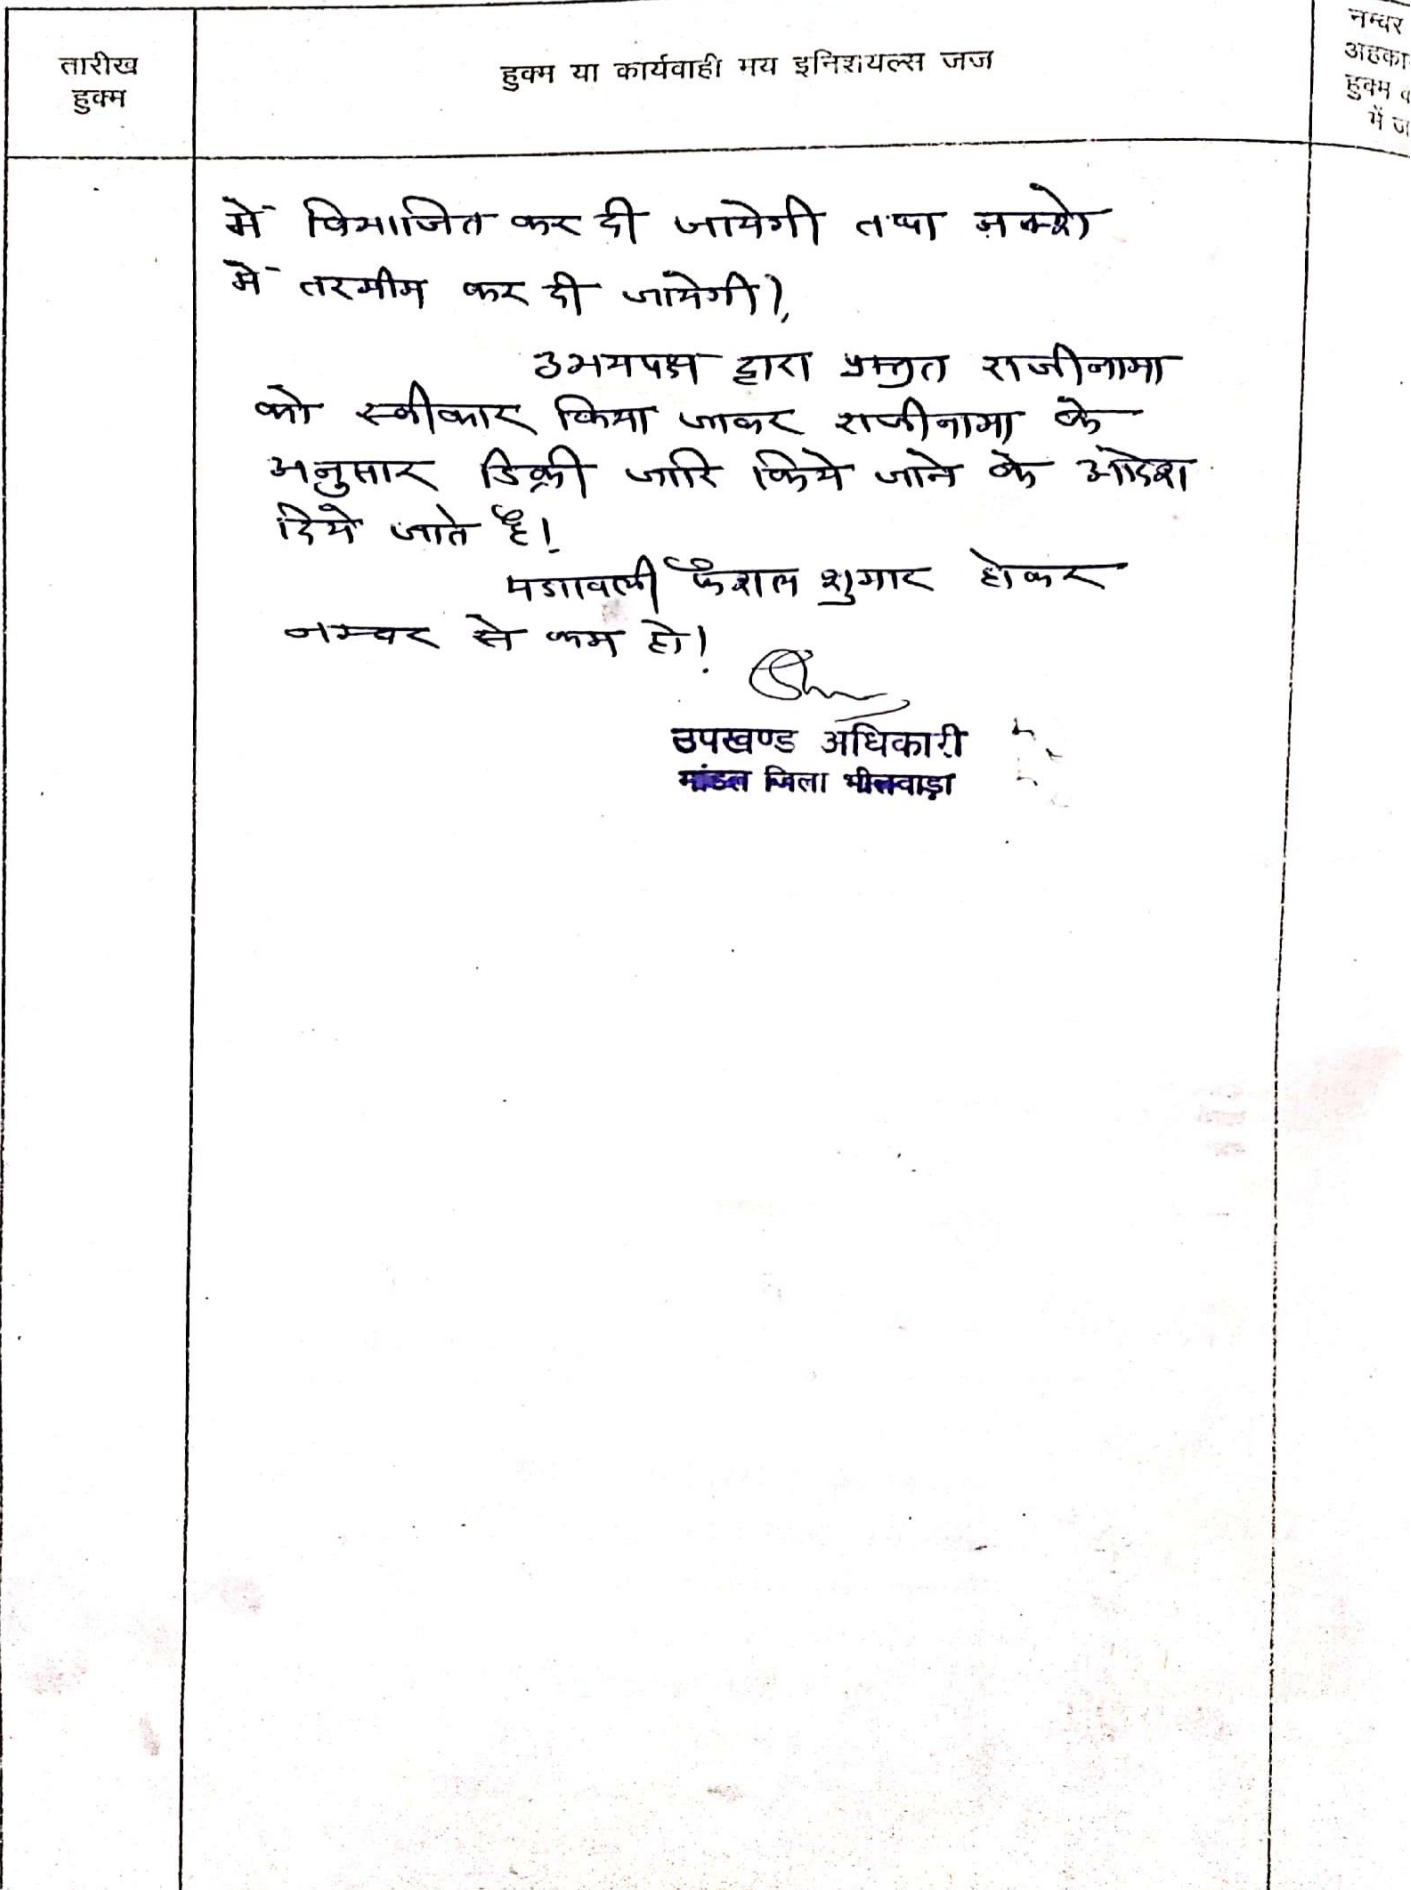 तारीख
हुक्म
हुक्म या कार्यवाही मय इनिशयल्स जज
नम्बर
अहका
हुक्म
में ज
में विभाजित कर दी जायेगी तथा नक्शे
में तरमीम कर दी जायेगी।
उभयपक्ष द्वारा प्रस्तुत राजीनामा
को स्वीकार किया जाकर राजीनामा के
अनुसार डिक्री जारि किये जाने के आदेश
दिये जाते है।
पत्रावली फैशल शुमार होकर
नम्बर से कम हो।
उपखण्ड अधिकारी
मांडल जिला भीलवाड़ा